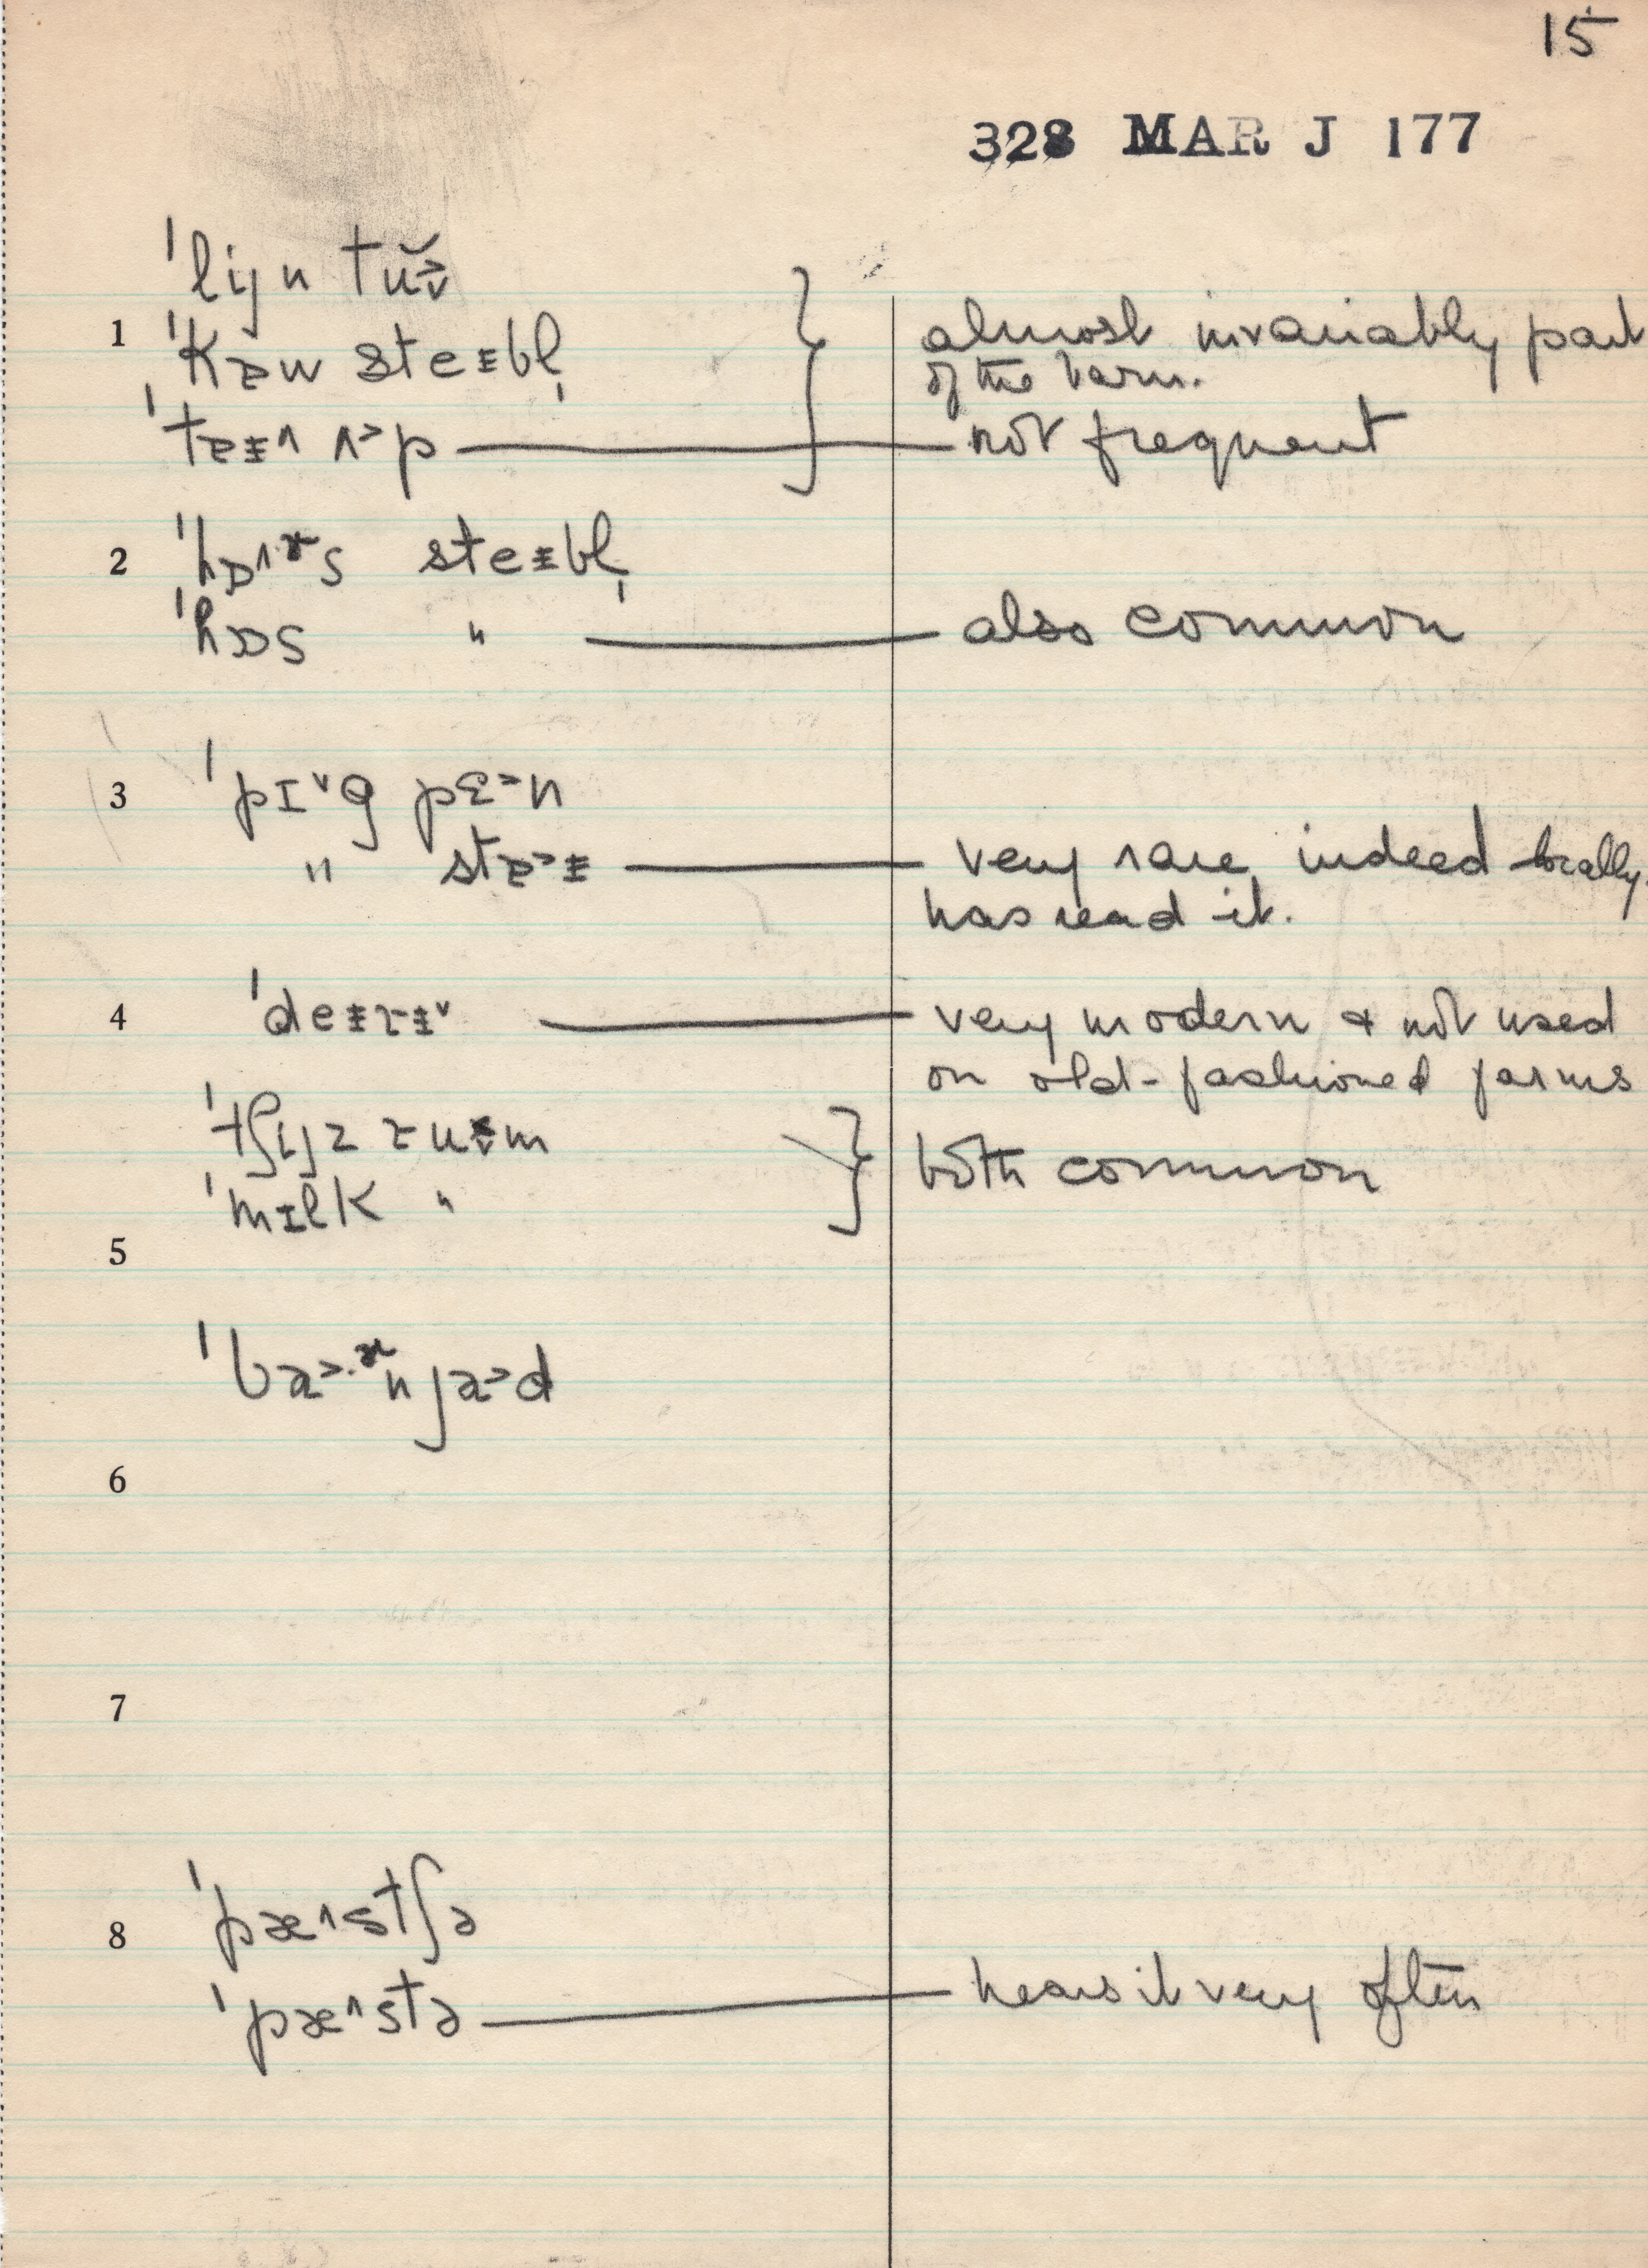 15
328 MAR J 177
ˈlijn tŭ˃v
1 ˈkɒw steᵻbl̩ almost invariably part
of the barn.
ˈtɐᵻ˄ ʌ˃p not frequent
2 ˈhɒ˄ɚs steᵻbl̩
ˈhɒs " also common
3 ˈpɪ˅g pɛ˃n
" stɐ˃ᵻ very rare indeed locally.
has read it.
4 ˈdeᵻɾᵻ˅ very modern & not used
on old-fashioned farms
ˈtʃijz ruᵿm
both common
ˈmɪlk "
5
ˈba˃·ɚn ja˃d
6
7
ˈpæ˄stʃə
8
ˈpæ˄stə hears it very often